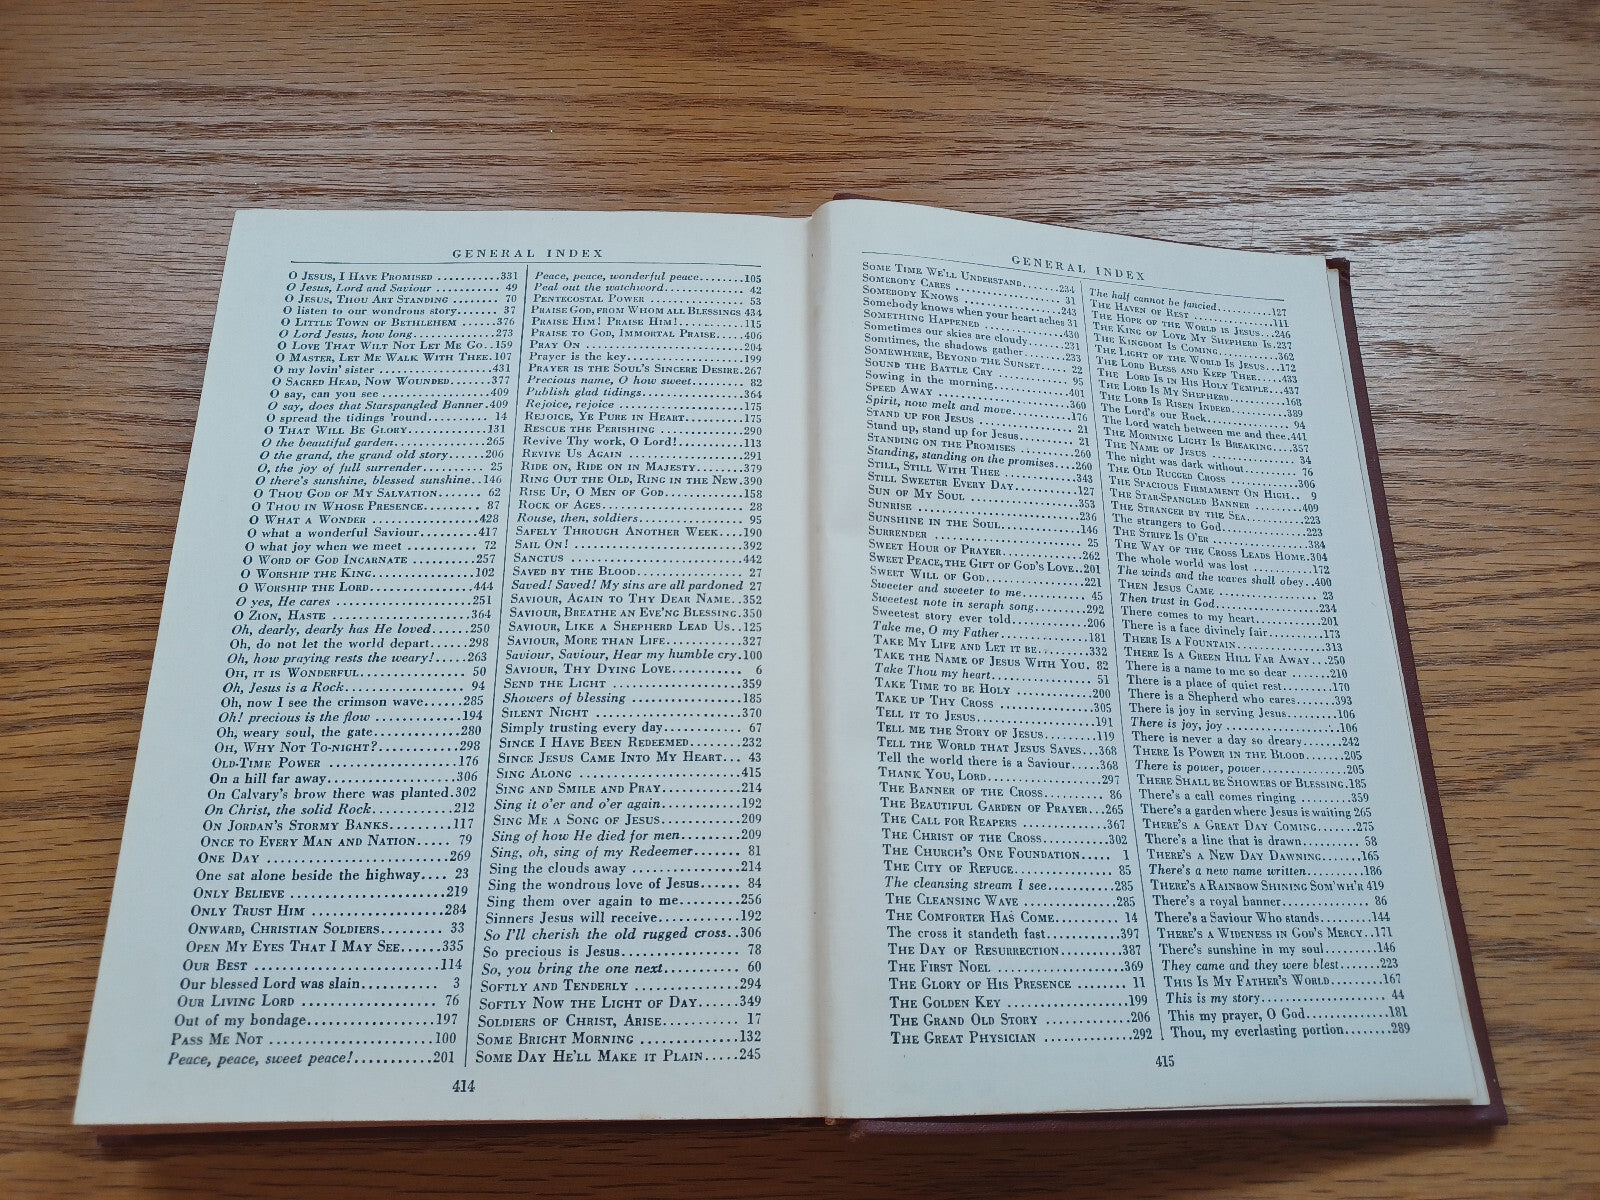 GENERAL INDEX
O Jesus, I Have Promised ..........331
O Jesus, Lord and Saviour ........ 49
O Jesus, Thou Art Standing ....... 70
O listen to our wondrous story...... 37
O Little Town of Bethlehem .......376
O Lord Jesus, how long.............273
O Love That Wilt Not Let Me Go..159
O Master, Let Me Walk With Thee.107
O my lovin' sister ..................431
O Sacred Head, Now Wounded......377
O say, can you see .................409
O say, does that Starspangled Banner.409
O spread the tidings 'round.......... 14
O That Will Be Glory..............131
O the beautiful garden..............265
O the grand, the grand old story.....206
O, the joy of full surrender.......... 25
O there's sunshine, blessed sunshine..146
O Thou God of My Salvation....... 62
O Thou in Whose Presence......... 87
O What a Wonder .................428
O what a wonderful Saviour.........417
O what joy when we meet .......... 72
O Word of God Incarnate .........257
O Worship the King...............102
O Worship the Lord...............444
O yes, He cares ....................251
O Zion, Haste ....................364
Oh, dearly, dearly has He loved......250
Oh, do not let the world depart......298
Oh, how praying rests the weary!.....263
Oh, it is Wonderful.............. 50
Oh, Jesus is a Rock................. 94
Oh, now I see the crimson wave......285
Oh! precious is the flow .............194
Oh, weary soul, the gate.............280
Oh, Why Not To-night?............298
Old-Time Power ..................176
On a hill far away..................306
On Calvary's brow there was planted.302
On Christ, the solid Rock............212
On Jordan's Stormy Banks.........117
Once to Every Man and Nation..... 79
One Day ..........................269
One sat alone beside the highway.... 23
Only Believe .....................219
Only Trust Him ..................284
Onward, Christian Soldiers........ 33
Open My Eyes That I May See......335
Our Best .........................114
Our blessed Lord was slain.......... 3
Our Living Lord .................. 76
Out of my bondage.................197
Pass Me Not .....................100
Peace, peace, sweet peace!...........201
Peace, peace, wonderful peace.......105
Peal out the watchword............. 42
Pentecostal Power ................ 53
Praise God, from Whom all Blessings 434
Praise Him! Praise Him!...........115
Praise to God, Immortal Praise....406
Pray On .........................204
Prayer is the key...................199
Prayer is the Soul's Sincere Desire.267
Precious name, O how sweet......... 82
Publish glad tidings................364
Rejoice, rejoice ....................175
Rejoice, Ye Pure in Heart.........175
Rescue the Perishing .............290
Revive Thy work, O Lord!..........113
Revive Us Again .................291
Ride on, Ride on in Majesty.......379
Ring Out the Old, Ring in the New.390
Rise Up, O Men of God............158
Rock of Ages..................... 28
Rouse, then, soldiers............... 95
Safely Through Another Week....190
Sail On! .........................392
Sanctus .........................442
Saved by the Blood............... 27
Saved! Saved! My sins are all pardoned 27
Saviour, Again to Thy Dear Name..352
Saviour, Breathe an Eve'ng Blessing.350
Saviour, Like a Shepherd Lead Us..125
Saviour, More Than Life..........327
Saviour, Saviour, Hear my humble cry.100
Saviour, Thy Dying Love.......... 6
Send the Light ..................359
Showers of blessing ................185
Silent Night .....................370
Simply trusting every day........... 67
Since I Have Been Redeemed.......232
Since Jesus Came Into My Heart... 43
Sing Along ......................415
Sing and Smile and Pray..........214
Sing it o'er and o'er again...........192
Sing Me a Song of Jesus...........209
Sing of how He died for men........209
Sing, oh, sing of my Redeemer....... 81
Sing the clouds away ...............214
Sing the wondrous love of Jesus...... 84
Sing them over again to me..........256
Sinners Jesus will receive............192
So I'll cherish the old rugged cross..306
So precious is Jesus................. 78
So, you bring the one next........... 60
Softly and Tenderly ..............294
Softly Now the Light of Day......349
Soldiers of Christ, Arise........... 17
Some Bright Morning .............132
Some Day He'll Make it Plain.....245
414
GENERAL INDEX
Some Time We'll Understand.......234
Somebody Cares ................. 31
Somebody Knows ................243
Somebody knows when your heart aches 31
Something Happened .............430
Sometimes our skies are cloudy......231
Somtimes, the shadows gather.......233
Somewhere, Beyond the Sunset..... 22
Sound the Battle Cry ............ 95
Sowing in the morning..............401
Speed Away .....................360
Spirit, now melt and move..........176
Stand up for Jesus ............... 21
Stand up, stand up for Jesus......... 21
Standing on the Promises .........260
Standing, standing on the promises...260
Still, Still With Thee ...........343
Still Sweeter Every Day..........127
Sun of My Soul .................353
Sunrise .........................236
Sunshine in the Soul.............146
Surrender ....................... 25
Sweet Hour of Prayer............262
Sweet Peace, the Gift of God's Love..201
Sweet Will of God...............221
Sweeter and sweeter to me.......... 45
Sweetest note in seraph song.........292
Sweetest story ever told.............206
Take me, O my Father..............181
Take My Life and Let it be........332
Take the Name of Jesus With You. 82
Take Thou my heart................ 51
Take Time to be Holy ............200
Take up Thy Cross ..............305
Tell it to Jesus..................191
Tell me the Story of Jesus........119
Tell the World That Jesus Saves...368
Tell the world there is a Saviour.....368
Thank You, Lord.................297
The Banner of the Cross.......... 86
The Beautiful Garden of Prayer...265
The Call for Reapers .............367
The Christ of the Cross..........302
The Church's One Foundation..... 1
The City of Refuge............... 85
The cleansing stream I see...........285
The Cleansing Wave ..............285
The Comforter Has Come.......... 14
The cross it standeth fast............397
The Day of Resurrection..........387
The First Noel ..................369
The Glory of His Presence ........ 11
The Golden Key ..................199
The Grand Old Story .............206
The Great Physician .............292
The half cannot be fancied..........127
The Haven of Rest ...............111
The Hope of the World is Jesus....246
The King of Love My Shepherd Is.237
The Kingdom Is Coming...........362
The Light of the World Is Jesus...172
The Lord Bless and Keep Thee....433
The Lord Is in His Holy Temple...437
The Lord Is My Shepherd.........168
The Lord Is Risen Indeed.........389
The Lord's our Rock............... 94
The Lord watch between me and thee.441
The Morning Light Is Breaking....357
The Name of Jesus ............... 34
The night was dark without......... 76
The Old Rugged Cross ...........306
The Spacious Firmament On High.. 9
The Star-Spangled Banner ........409
The Stranger by the Sea..........223
The strangers to God...............223
The Strife Is O'er ...............384
The Way of the Cross Leads Home.304
The whole world was lost ...........172
The winds and the waves shall obey..400
Then Jesus Came ................ 23
Then trust in God..................234
There comes to my heart............201
There is a face divinely fair..........173
There Is a Fountain..............313
There Is a Green Hill Far Away...250
There is a name to me so dear .......210
There is a place of quiet rest.........170
There is a Shepherd who cares.......393
There is joy in serving Jesus.........106
There is joy, joy ....................106
There is never a day so dreary.......242
There Is Power in the Blood.......205
There is power, power...............205
There Shall be Showers of Blessing.185
There's a call comes ringing .........359
There's a garden where Jesus is waiting 265
There's a Great Day Coming......275
There's a line that is drawn.......... 58
There's a New Day Dawning.......165
There's a new name written..........186
There's a Rainbow Shining Som'wh'r 419
There's a royal banner .............. 86
There's a Saviour Who stands.......144
There's a Wideness in God's Mercy..171
There's sunshine in my soul..........146
They came and they were blest.......223
This Is My Father's World.........167
This is my story.................... 44
This my prayer, O God..............181
Thou, my everlasting portion........289
415